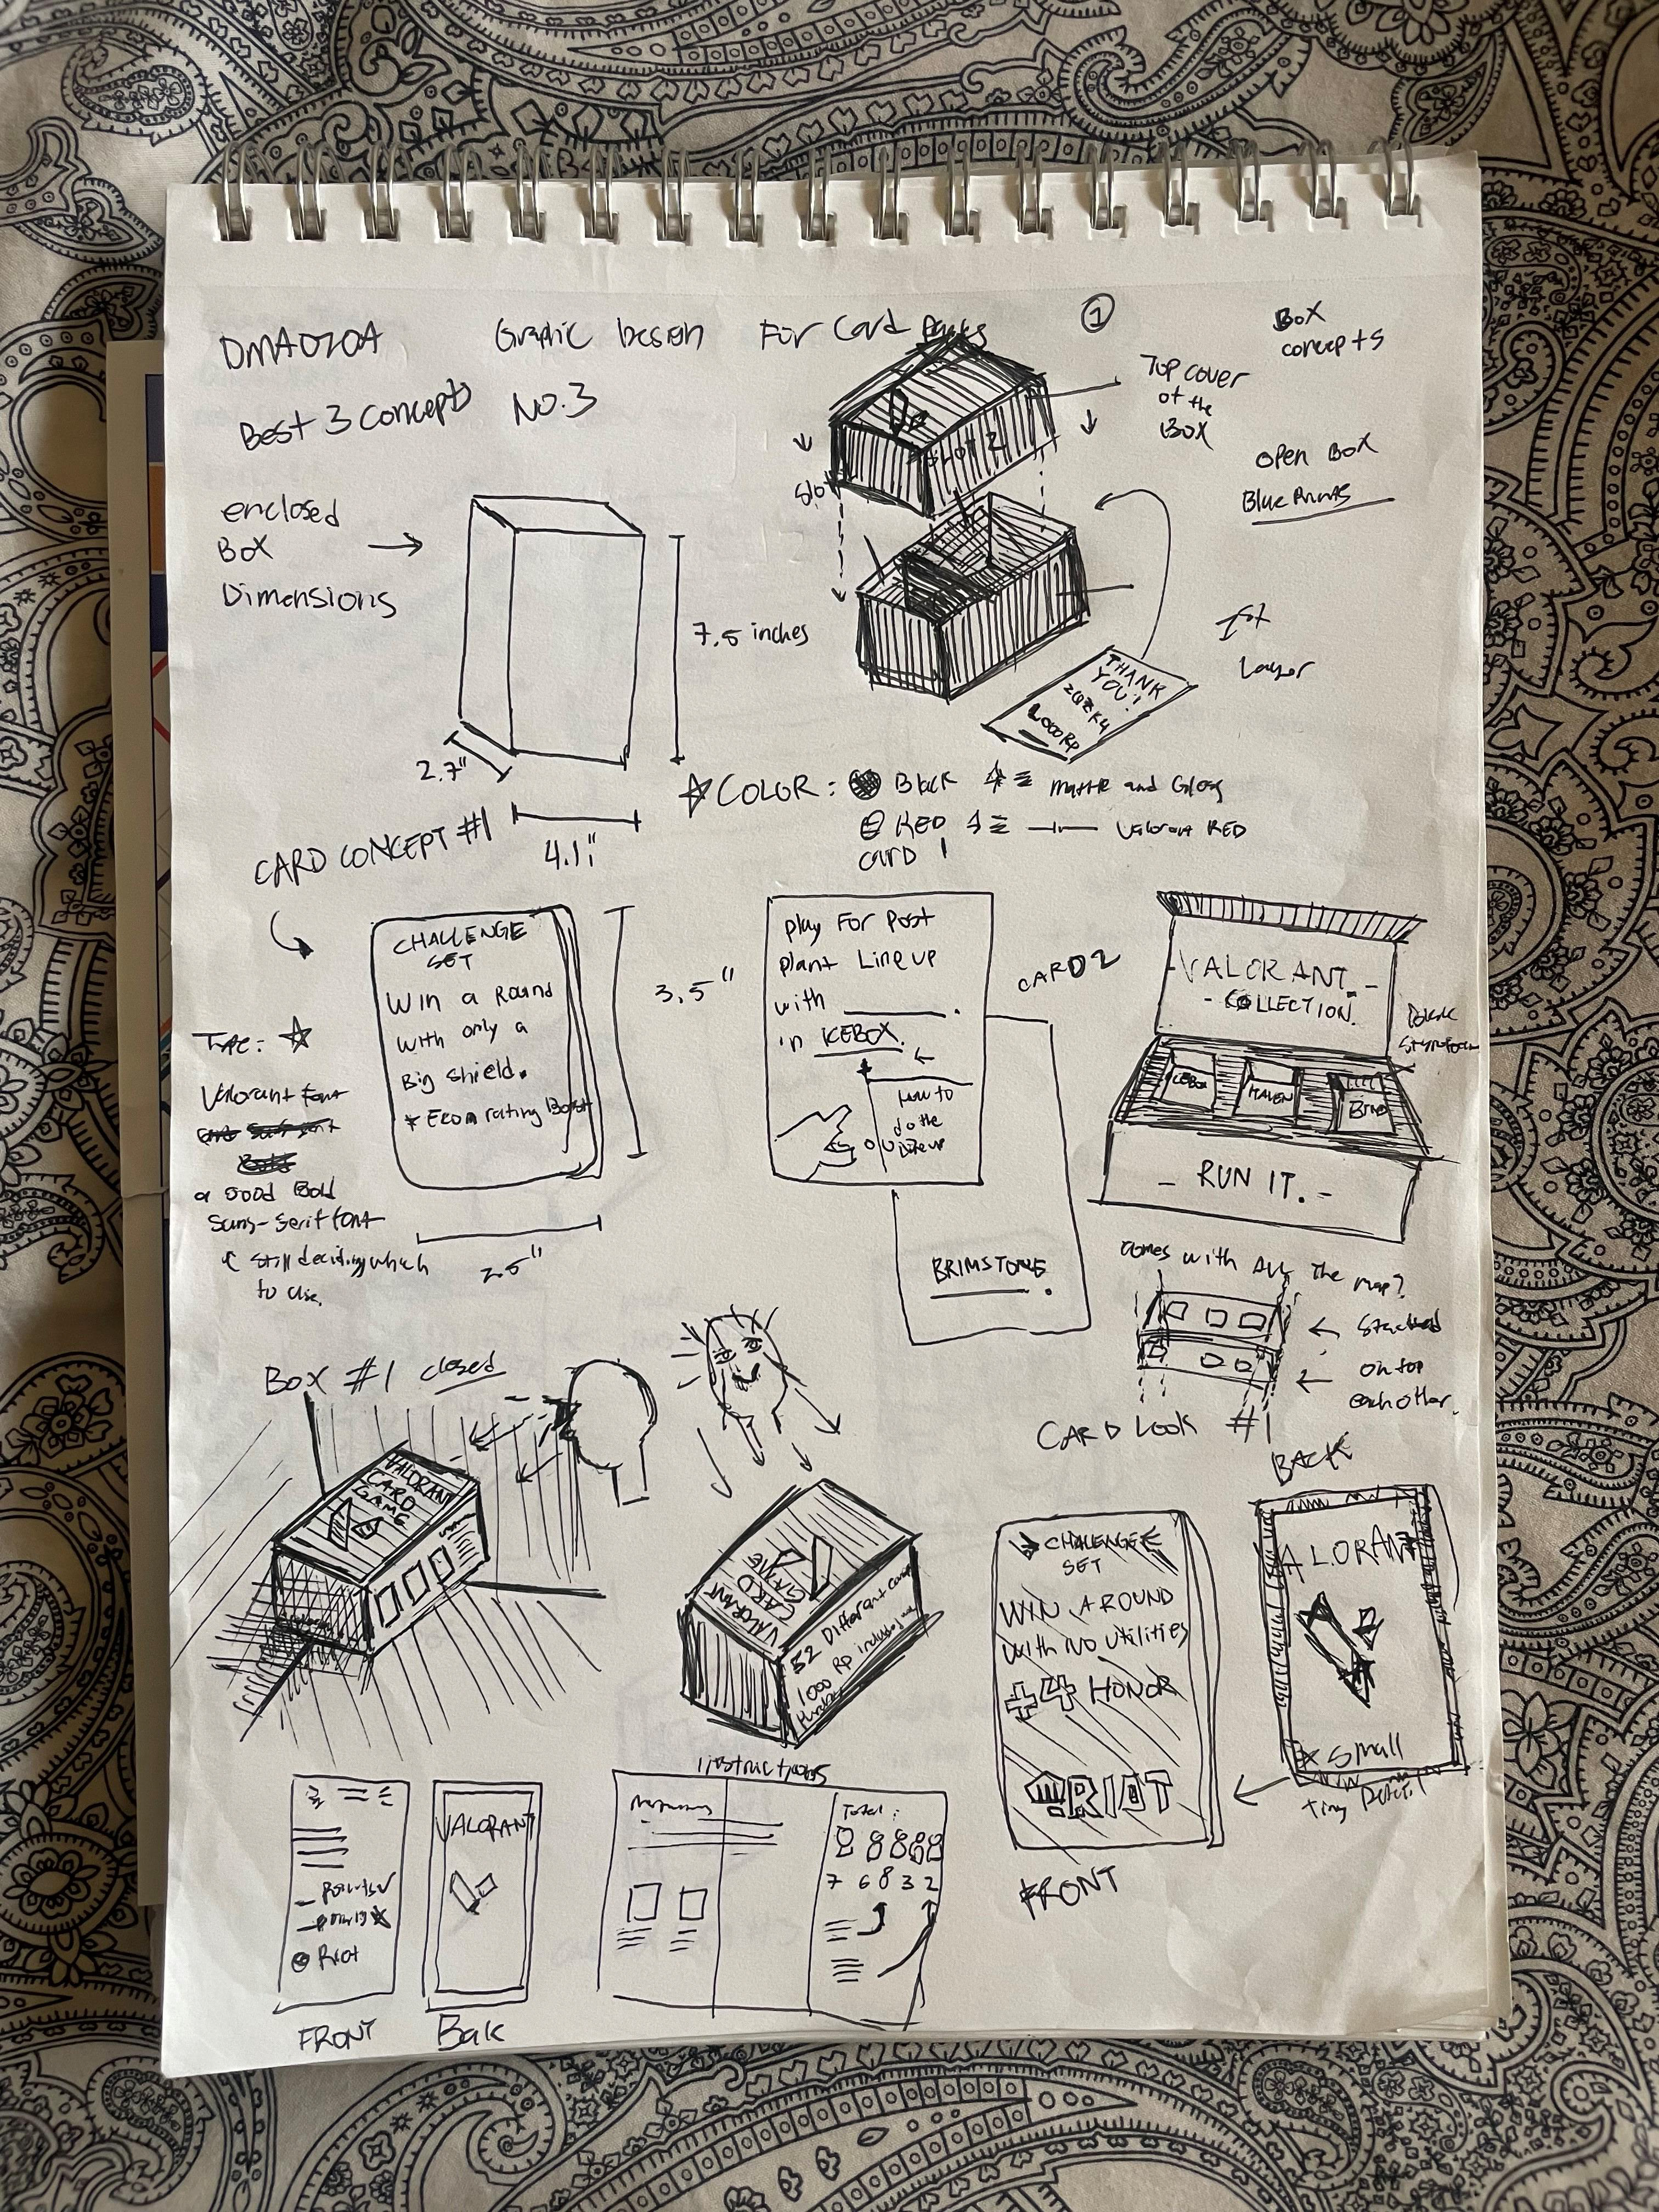 DMA070A
Graphic Design For Card Packs
1
Box
concepts
Best 3 concepts No.3
Top cover
of the
Box
Open Box
Blue Prints
enclosed
Box
Dimensions
7.5 inches
2.7"
4.1"
Slot
SLOT 2
1st
Layer
THANK
YOU!
1000 Rp
COLOR: Black matte and Gloss
RED Valorant RED
CARD CONCEPT #1
CHALLENGE
SET
WIN a Round
with only a
Big Shield.
3.5"
2.5"
Type:
Valorant font
a good Bold
Sans-Serif font
still deciding which
to use.
card 1
play For Post
plant Line up
with ______.
in ICEBOX.
How to
do the
Line up
CARD 2
BRIMSTONE.
-VALORANT.-
- COLLECTION.
ICEBOX
HAVEN
BIND
- RUN IT. -
comes with All the map?
stacked
on top
each other.
Box #1 closed
VALORANT
CARD
GAME
VALORANT
CARD
GAME
52 Different
1000 Rp
CARD LOOK #1
CHALLENGE
SET
WIN A ROUND
with NO utilities
+4 HONOR
RIOT
FRONT
BACK
ALORANT
* Small
tiny Detail
Riot
FRONT
VALORANT
Bak
instructions
Total:
7 6 8 3 2